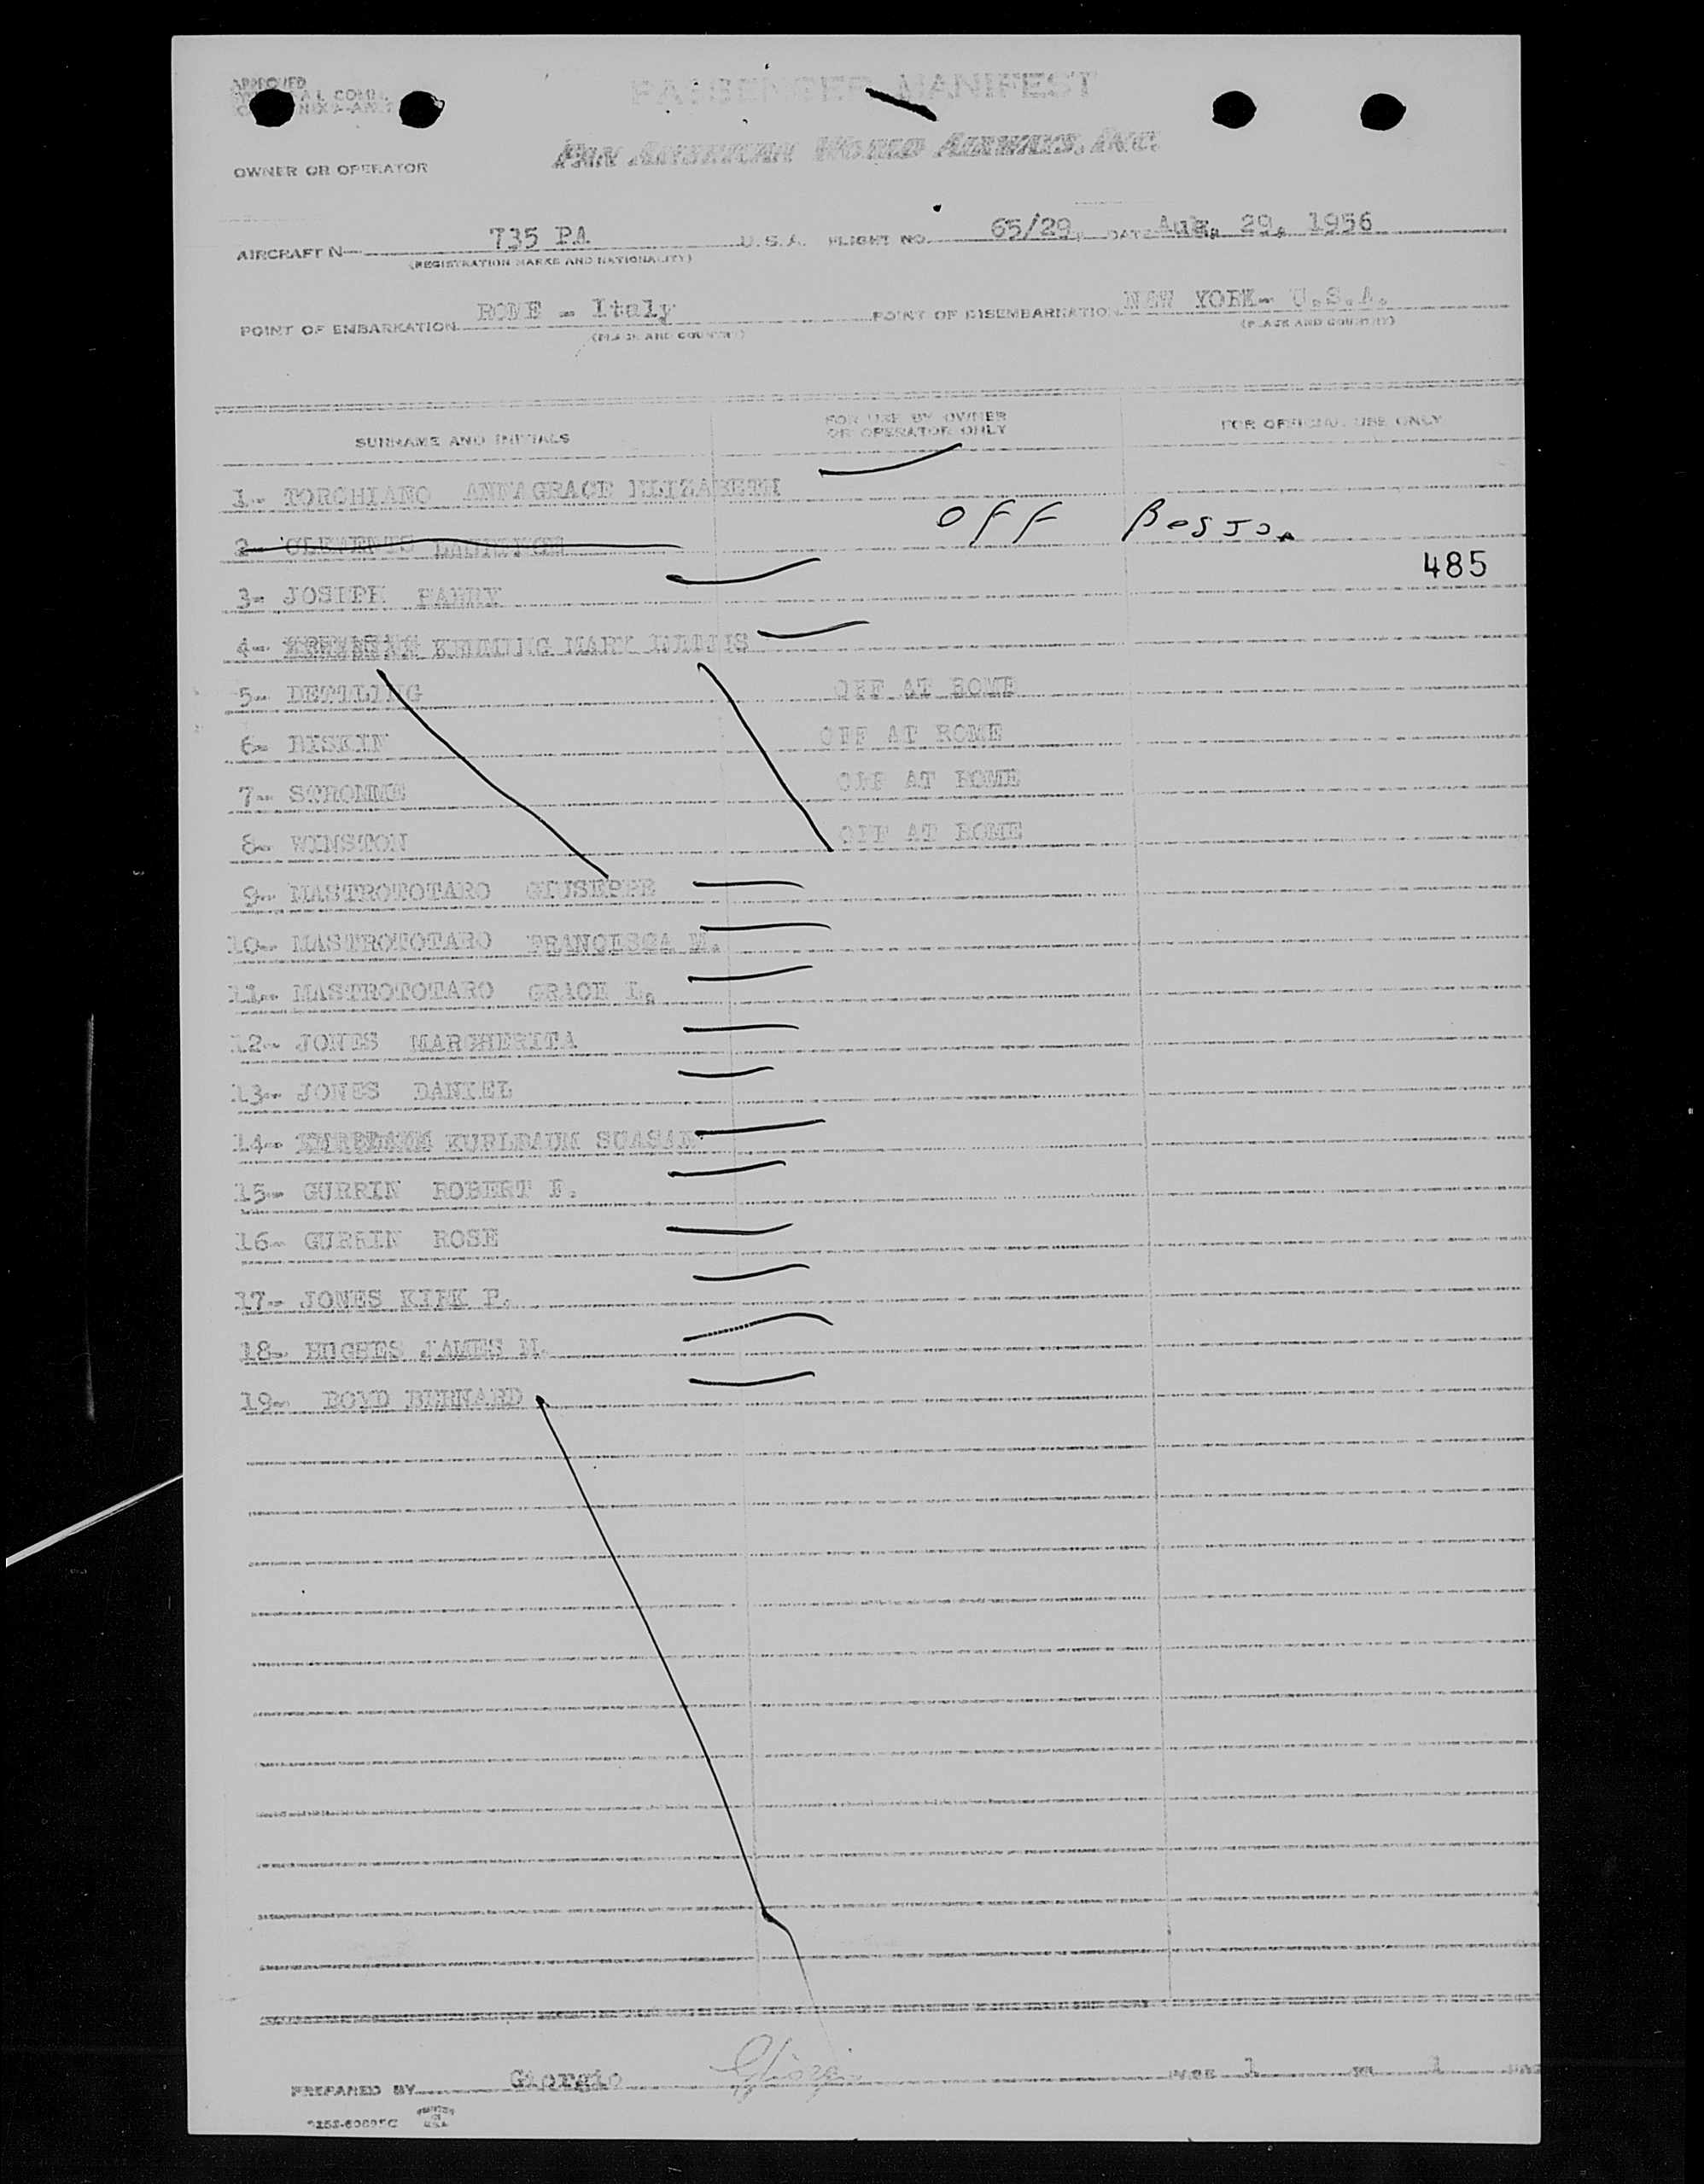 APPROVED
PASSENGER MANIFEST
PAN AMERICAN WORLD AIRWAYS, INC.
OWNER OR OPERATOR
AIRCRAFT N— 735 PA U.S.A. FLIGHT NO. 65/29, DATE Aug, 29, 1956
(REGISTRATION MARKS AND NATIONALITY)
POINT OF EMBARKATION ROME - Italy POINT OF DISEMBARKATION NEW YORK- U.S.A.
(PLACE AND COUNTRY) (PLACE AND COUNTRY)
SURNAME AND INITIALS FOR USE BY OWNER OR OPERATOR ONLY FOR OFFICIAL USE ONLY
1- TORCHIANO ANNAGRACE ELIZABETH
2- CLEMENTS OFF Boston
485
3- JOSEPH HARRY
4- MARY
5- DETTLING OFF AT ROME
6- RISKIN OFF AT ROME
7- STROMME OFF AT ROME
8- WINSTON OFF AT ROME
9- MASTROTOTARO GIUSEPPE
10- MASTROTOTARO FRANCESCA M.
11- MASTROTOTARO GRACE L.
12- JONES MARGHERITA
13- JONES DANIEL
14- KURLBAUM SUASAN
15- GURRIN ROBERT F.
16- GURRIN ROSE
17- JONES KIRK P.
18- HUGHES JAMES M.
19- BOYD BERNARD
PREPARED BY Giorgio Giorgio PAGE 1 OF 1
PRINTED IN U.S.A.